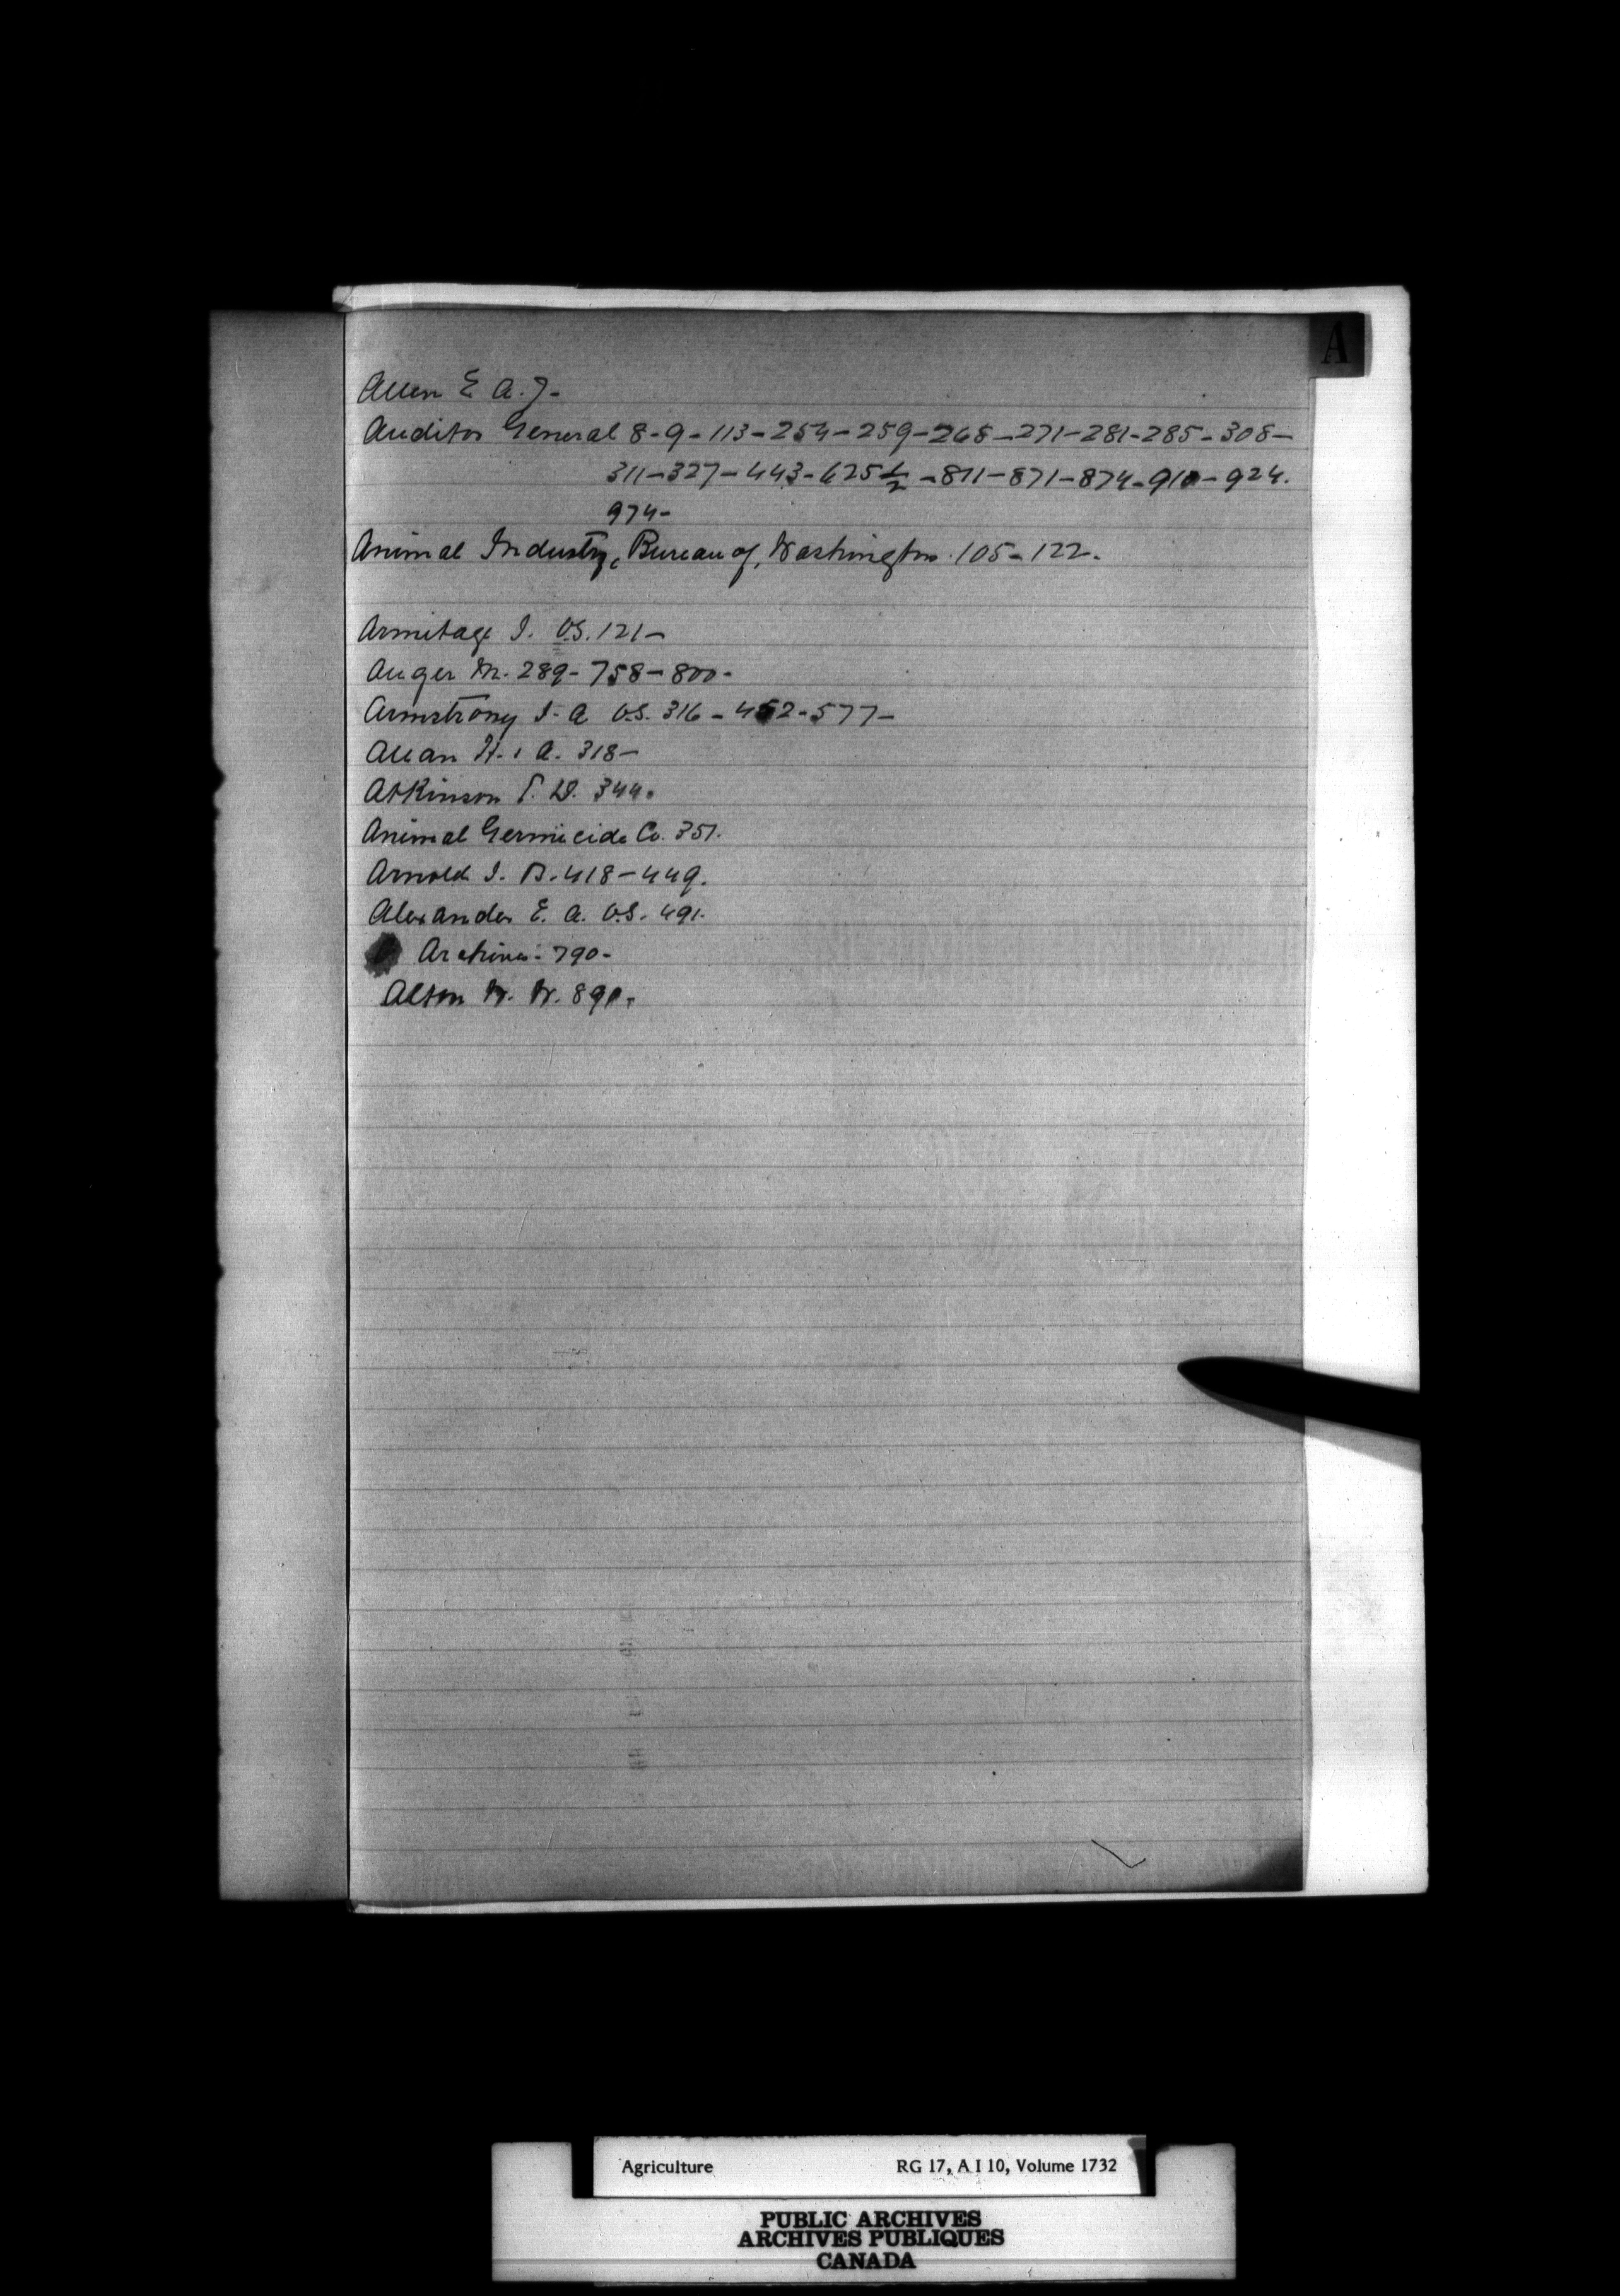 A
Allen E. A. 7-
Auditor General 8-9-113-254-259-268-271-281-285-308-
311-327-443-625½-811-871-874-910-924.
974-
Animal Industry, Bureau of, Washington. 105-122.
Armitage J. V.S. 121-
Auger M. 289-758-800-
Armstrong J. A. V.S. 316-452-577-
Allan H. A. 318-
Atkinson T. D. 344.
Animal Germicide Co. 351.
Arnold J. B. 418-449.
Alexander E. A. V.S. 491.
Archives 790-
Alton W. W. 890.
Agriculture RG 17, A I 10, Volume 1732
PUBLIC ARCHIVES
ARCHIVES PUBLIQUES
CANADA